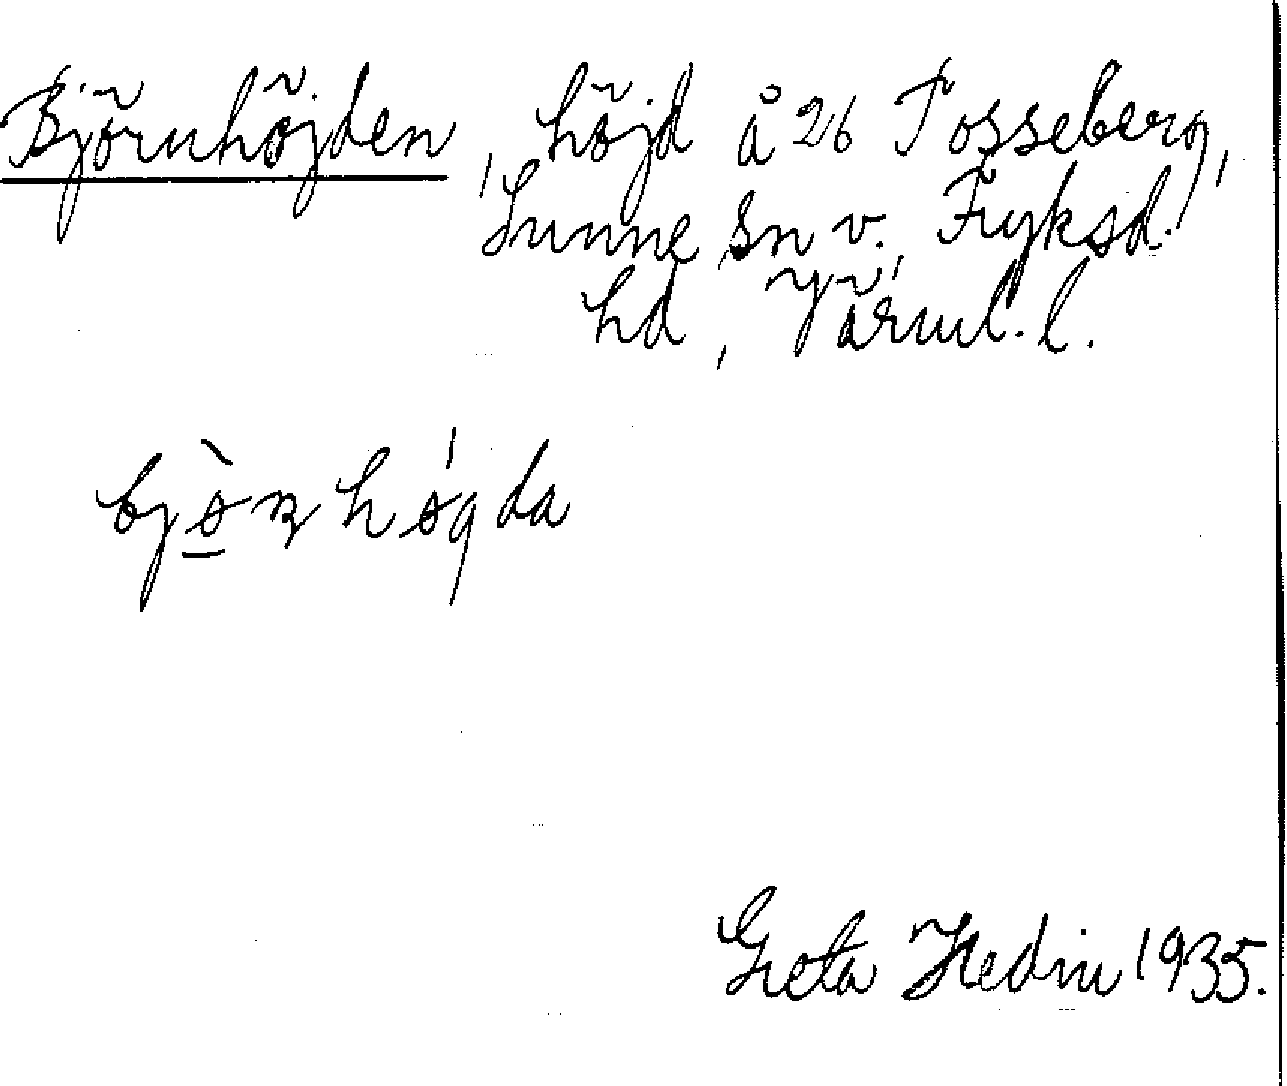 Björnhöjden, höjd å 26 Tosseberg,
Sunne sn v., Fryksd.
hd, Värml. l.
bjø̀ṇhǿgda
Greta Hedin 1935.